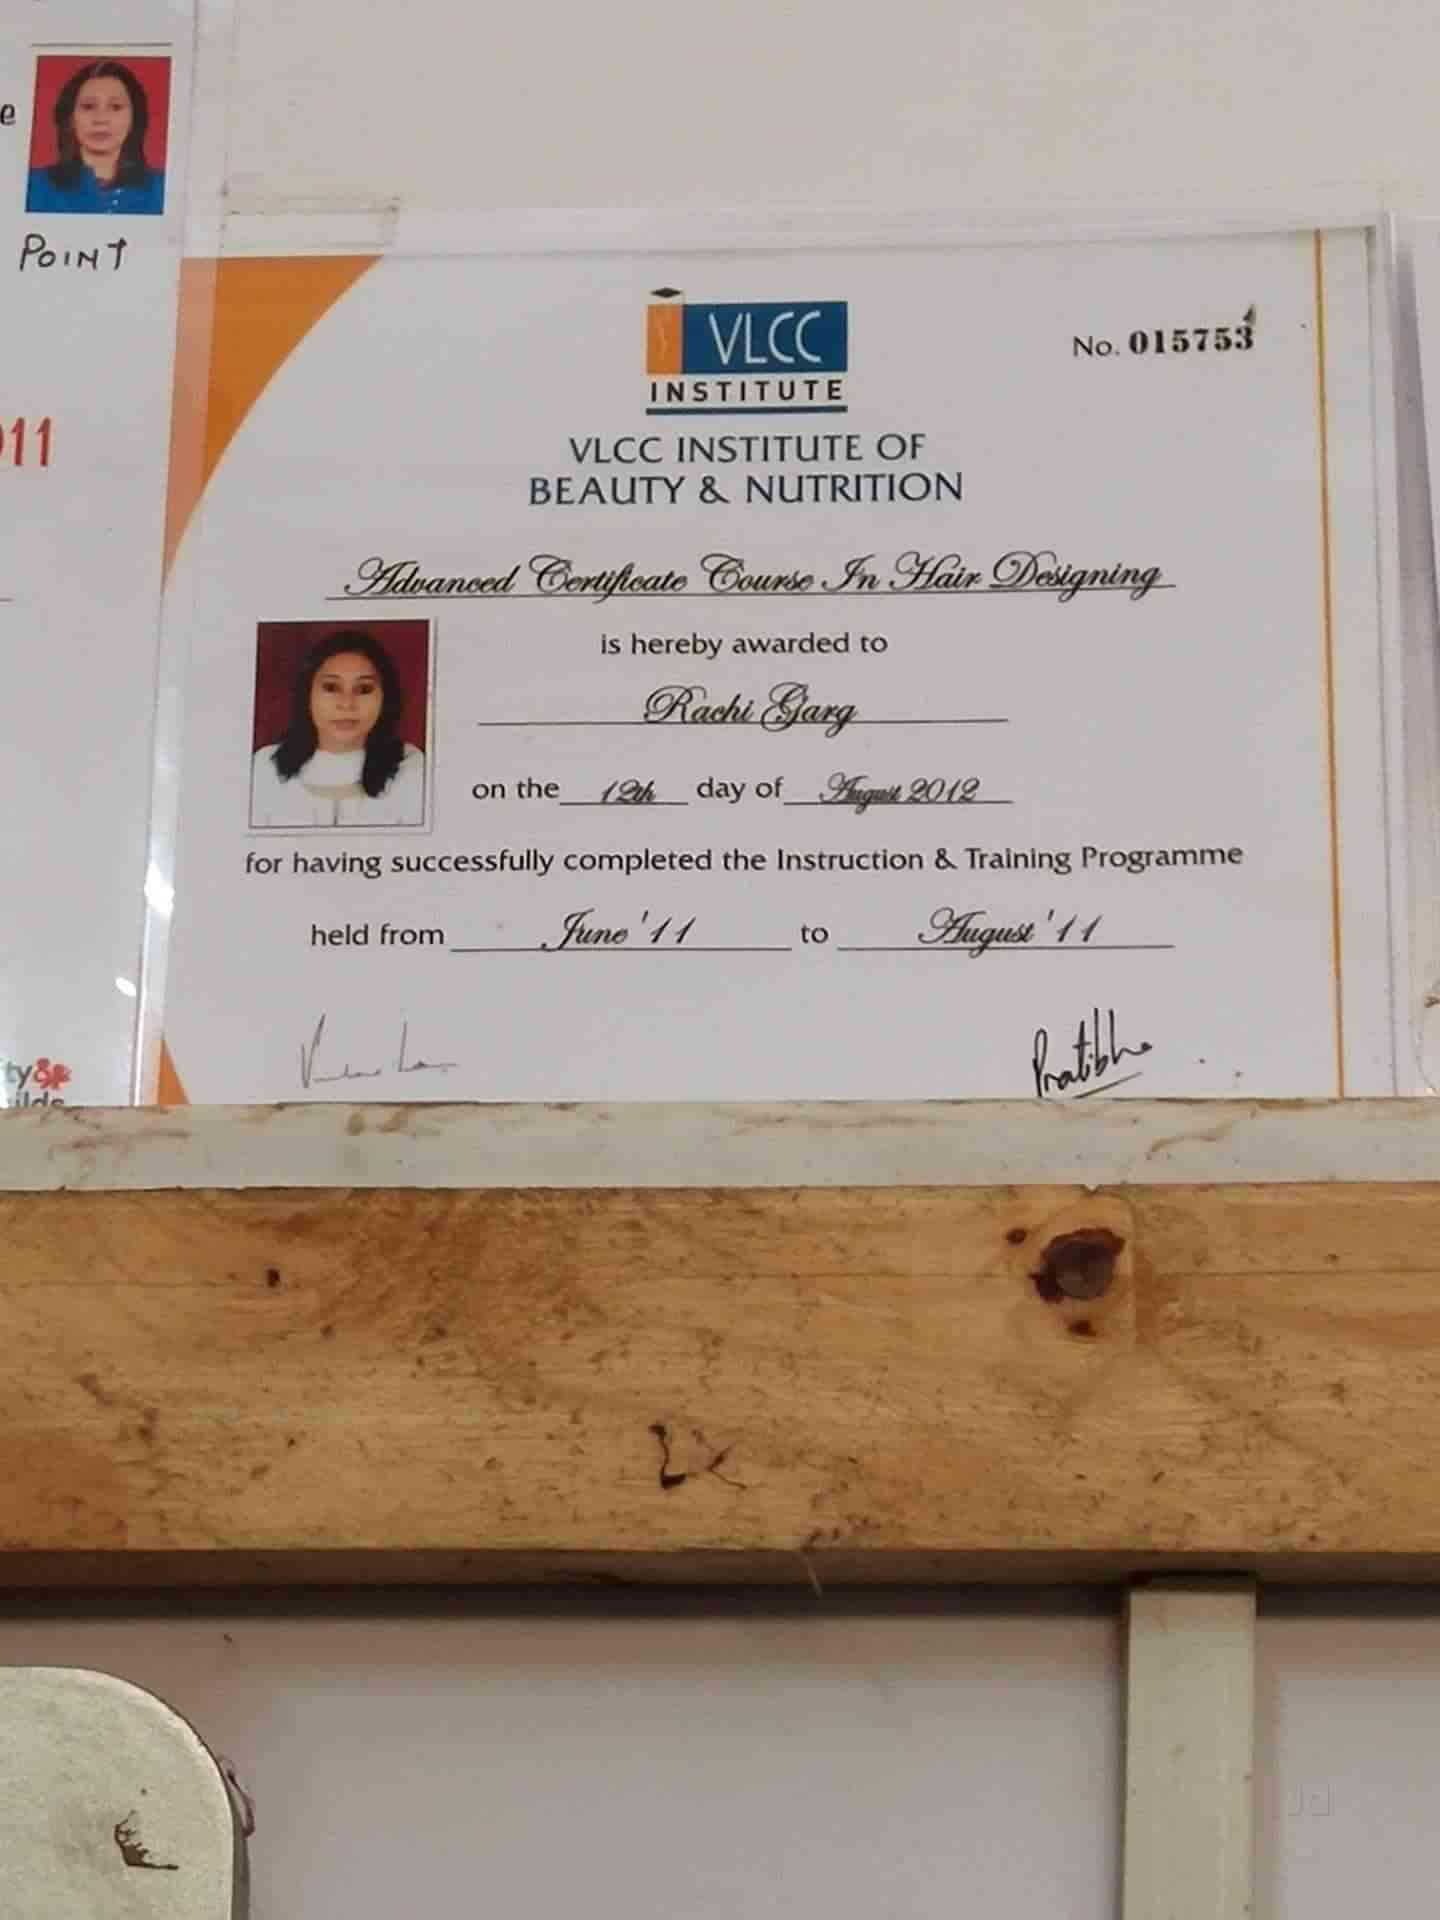 e
POINT
011
ty&
uilds
VLCC
INSTITUTE
No. 015753
VLCC INSTITUTE OF
BEAUTY & NUTRITION
Advanced Certificate Course In Hair Designing
is hereby awarded to
Rachi Garg
on the 12th day of August 2012
for having successfully completed the Instruction & Training Programme
held from June '11 to August '11
Pratibha
Jd